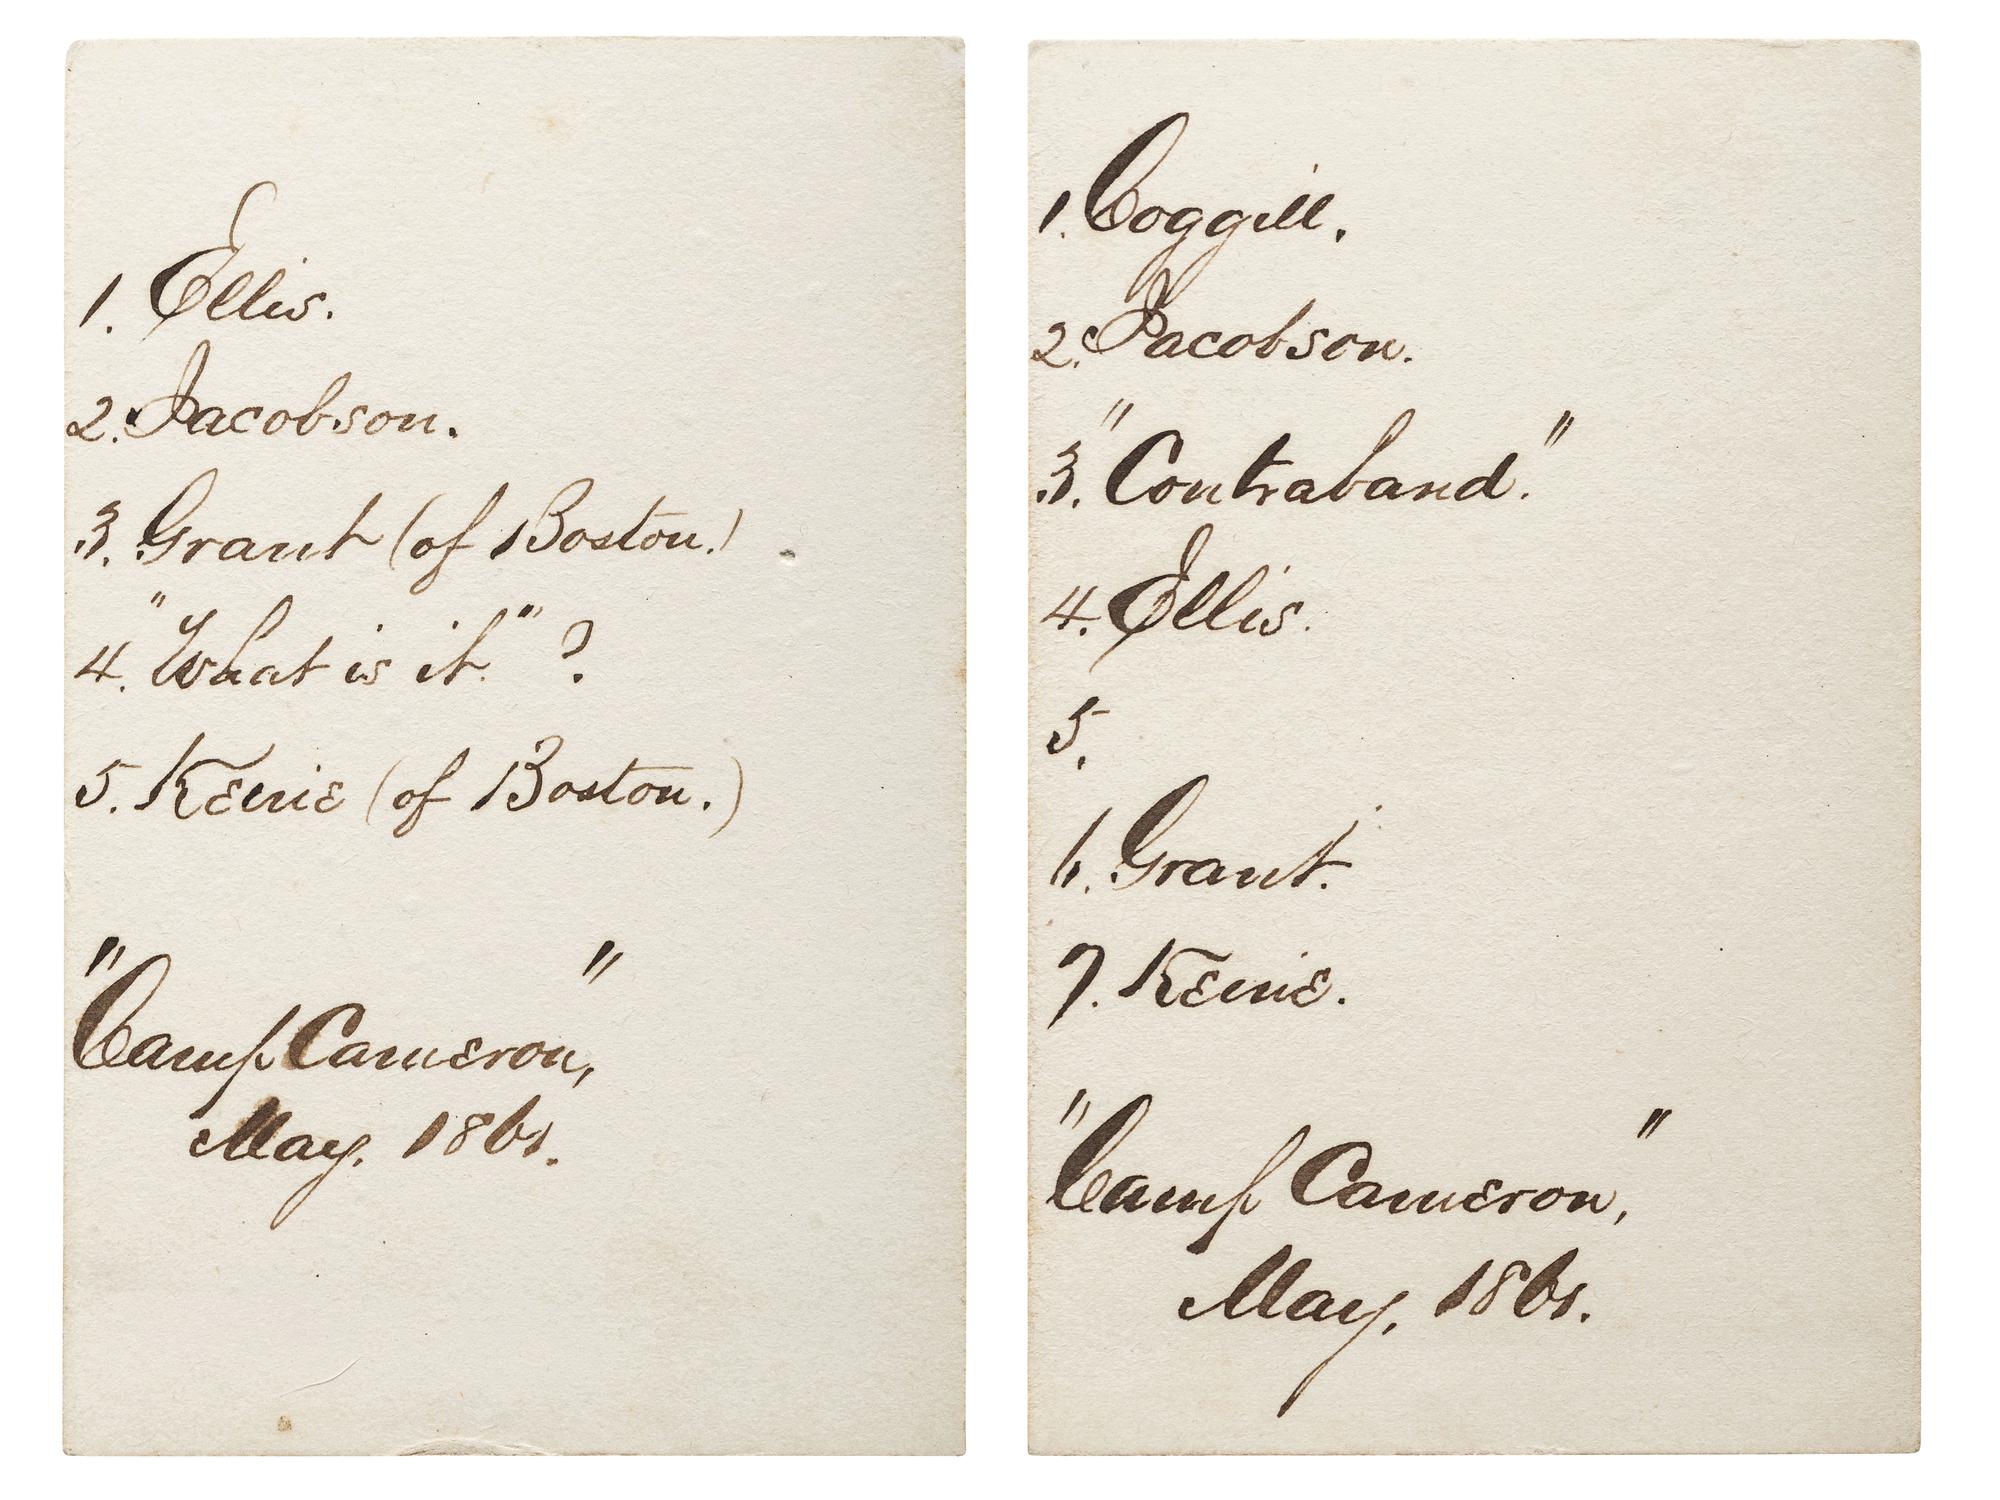 1. Ellis.
2. Jacobson.
3. Grant (of Boston.)
4. "What is it." ?
5. Keene (of Boston.)
"Camp Cameron,"
May, 1861.
1. Coggill.
2. Jacobson.
3. "Contraband."
4. Ellis.
5.
6. Grant.
7. Keene.
"Camp Cameron,"
May, 1861.